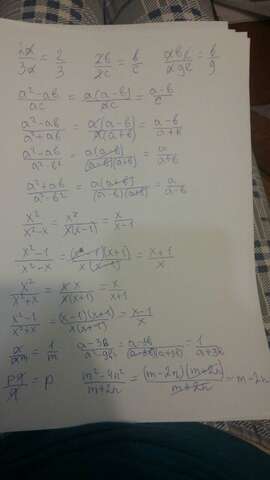 2a/3a = 2/3    2b/2c = b/c    abc/age = b/9
a²-ab/ac = a(a-b)/ac = a-b/c
a²-ab/a²+ab = a(a-b)/a(a+b) = a-b/a+b
a²-ab/a²-b² = a(a-b)/(a-b)(a+b) = a/a+b
a²+ab/a²-b² = a(a+b)/(a-b)(a+b) = a/a-b
x²/x²-x = x²/x(x-1) = x/x-1
x²-1/x²-x = (x-1)(x+1)/x(x-1) = x+1/x
x²/x²+x = x x/x(x+1) = x/x+1
x²-1/x²+x = (x-1)(x+1)/x(x+1) = x-1/x
a/am = 1/m    a-3b/a²-9b² = a-3b/(a-3b)(a+3b) = 1/a+3b
pq/q = p    m²-4n²/m+2n = (m-2n)(m+2n)/m+2n = m-2n